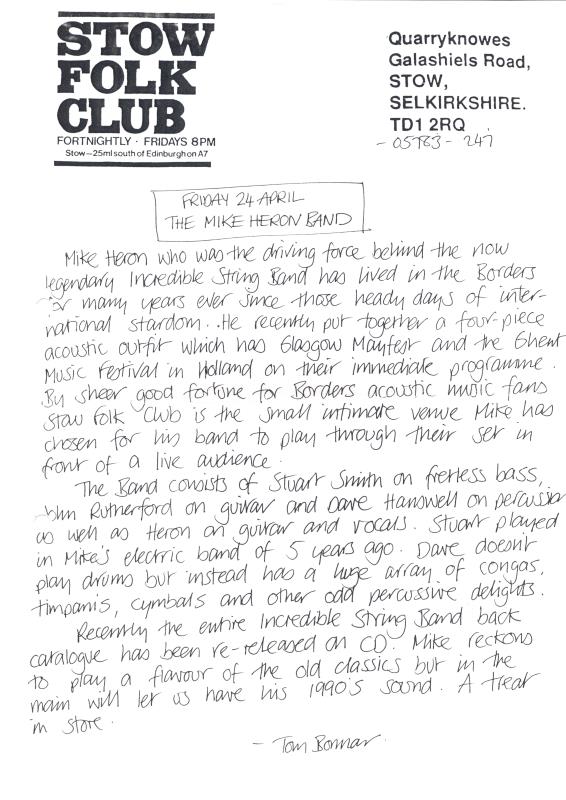 STOW
FOLK
CLUB
FORTNIGHTLY · FRIDAYS 8PM
Stow—25ml south of Edinburgh on A7
Quarryknowes
Galashiels Road,
STOW,
SELKIRKSHIRE.
TD1 2RQ
- 05783 - 247
FRIDAY 24 APRIL
THE MIKE HERON BAND
Mike Heron who was the driving force behind the now
legendary Incredible String Band has lived in the Borders
for many years ever since those heady days of inter-
national stardom. He recently put together a four-piece
acoustic outfit which has Glasgow Mayfest and the Ghent
Music Festival in Holland on their immediate programme.
By sheer good fortune for Borders acoustic music fans
Stow Folk Club is the small intimate venue Mike has
chosen for his band to play through their set in
front of a live audience.
The Band consists of Stuart Smith on fretless bass,
John Rutherford on guitar and Dave Hanswell on percussion
as well as Heron on guitar and vocals. Stuart played
in Mike's electric band of 5 years ago. Dave doesn't
play drums but instead has a huge array of congas,
timpanis, cymbals and other odd percussive delights.
Recently the entire Incredible String Band back
catalogue has been re-released on CD. Mike reckons
to play a flavour of the old classics but in the
main will let us have his 1990's sound. A treat
in store.
- Tom Bonnar.